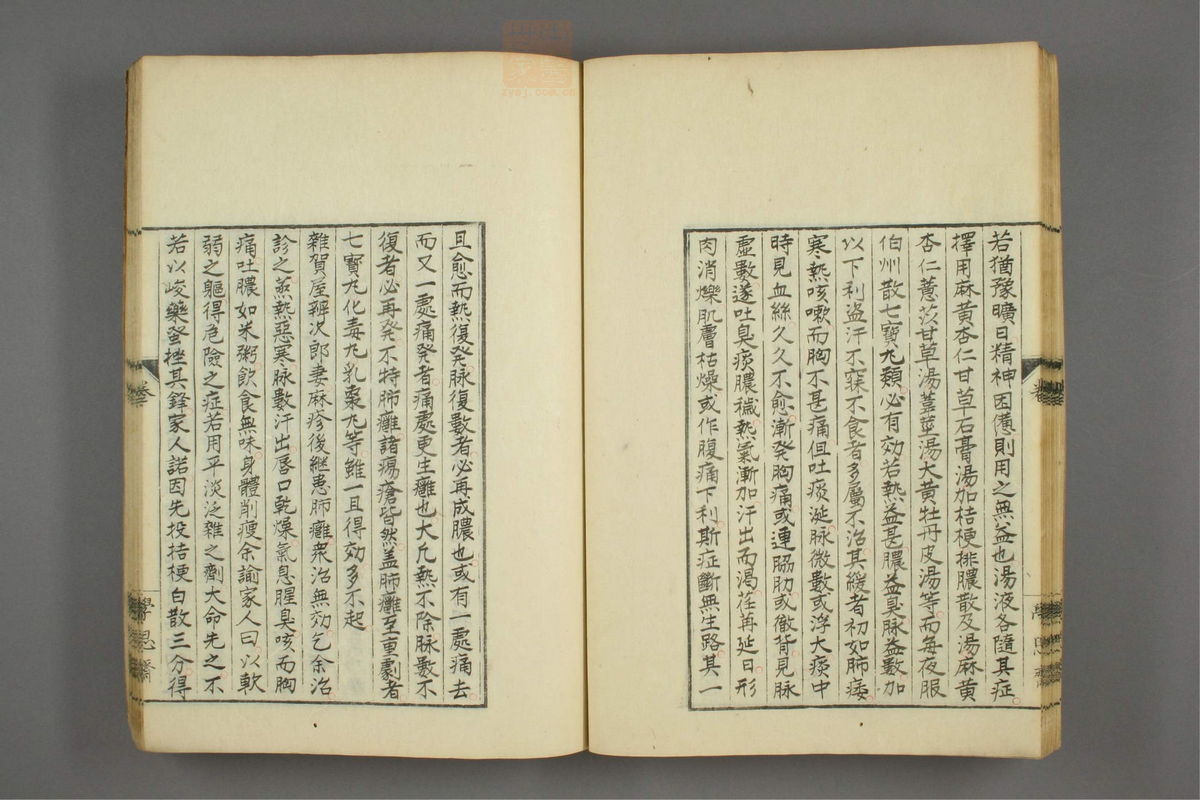 若猶豫曠日精神困憊則用之無益也湯液各隨其症
擇用麻黃杏仁甘草石膏湯加桔梗排膿散及湯麻黃
杏仁薏苡甘草湯葦莖湯大黃牡丹皮湯等而每夜服
伯州散七寶丸類必有効若熱益甚膿益臭脉益數加
以下利盜汗不寐不食者多屬不治其緩者初如肺痿
寒熱咳嗽而胸不甚痛但吐痰涎脉微數或浮大痰中
時見血絲久久不愈漸發胸痛或連脇肋或徹背見脉
虛數遂吐臭痰膿穢熱氣漸加汗出而渴荏苒延日形
肉消爍肌膚枯燥或作腹痛下利斯症斷無生路其一
且愈而熱復發脉復數者必再成膿也或有一處痛去
而又一處痛發者痛處更生癰也大凡熱不除脉數不
復者必再發不特肺癰諸瘍瘡皆然盖肺癰至重劇者
七寶丸化毒丸乳棗丸等雖一且得効多不起
雜賀屋辨次郎妻麻疹後継患肺癰衆治無効乞余治
診之蒸熱惡寒脉數汗出唇口乾燥氣息腥臭咳而胸
痛吐膿如米粥飲食無味身體削瘦余諭家人曰以軟
弱之軀得危險之症若用平淡泛雜之劑大命先之不
若以峻藥蚤挫其鋒家人諾因先投桔梗白散三分得
卷
學思齋
zysj.com.cn